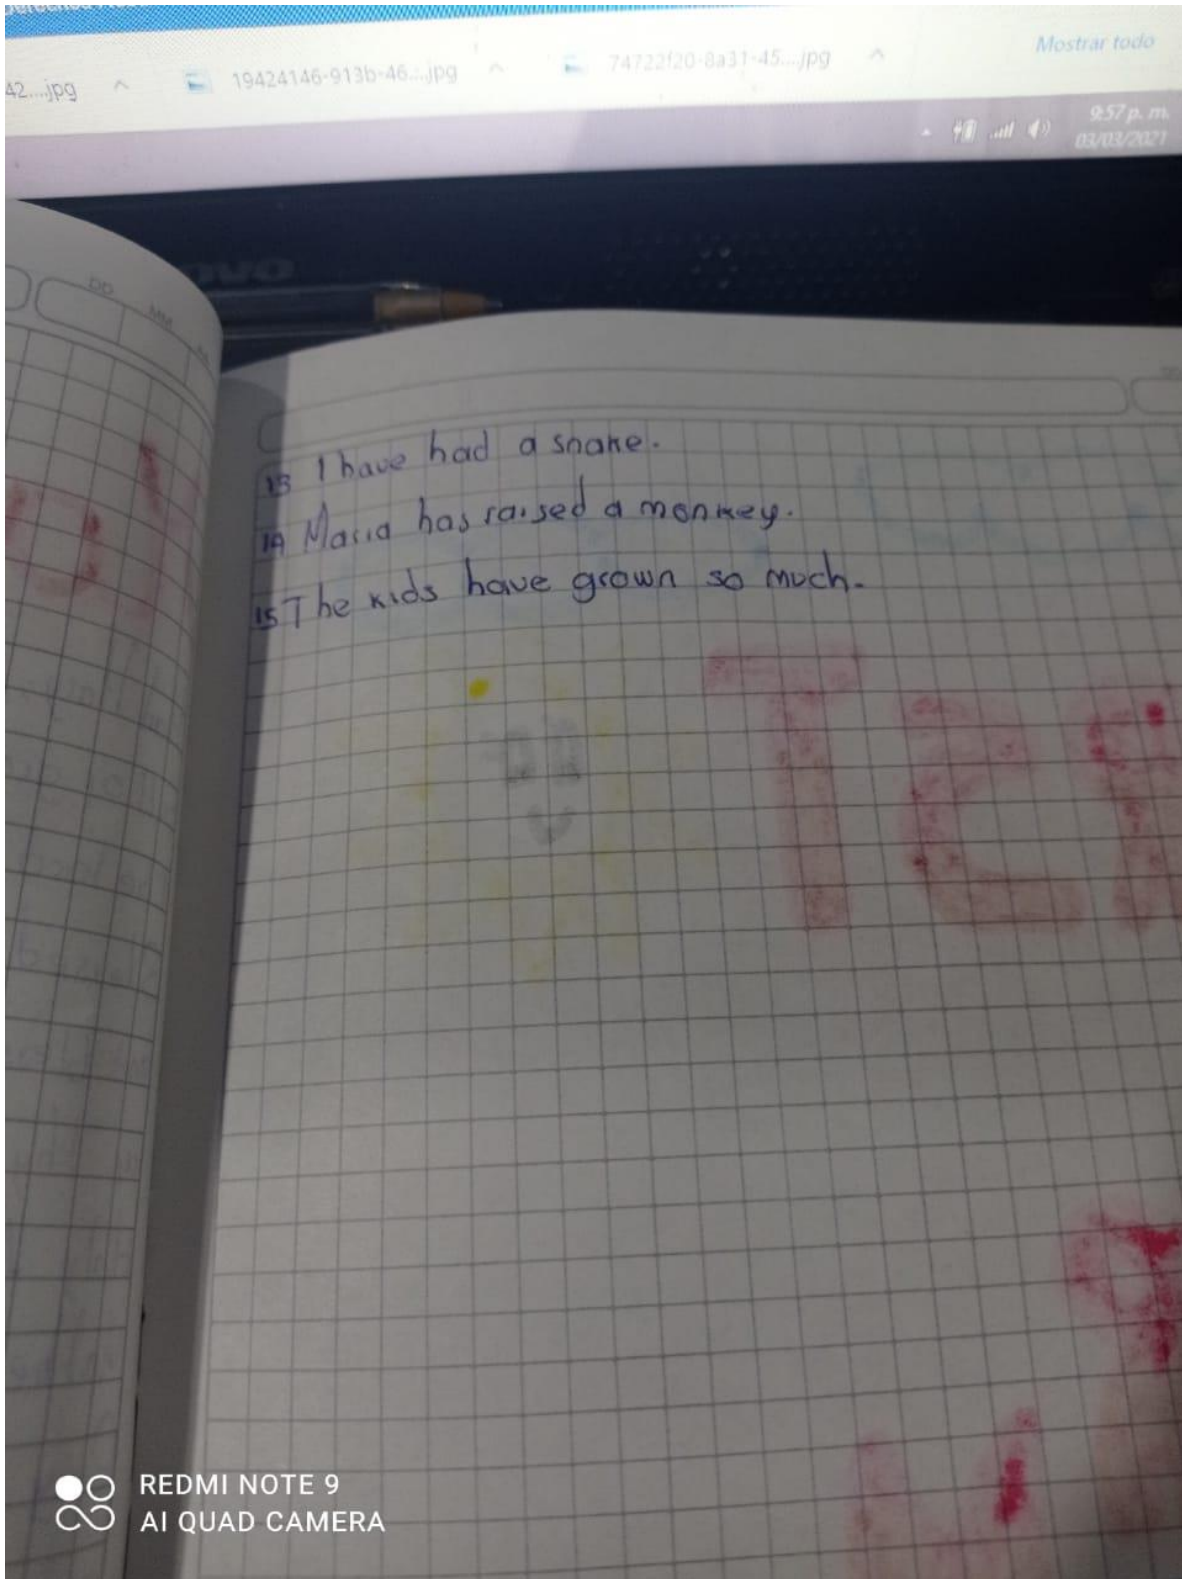 42....jpg
19424146-913b-46....jpg
74722f20-8a31-45....jpg
Mostrar todo
9:57 p. m.
03/03/2021
DD
MM
13 I have had a snake.
14 Maria has raised a monkey.
15 The kids have grown so much.
REDMI NOTE 9
AI QUAD CAMERA